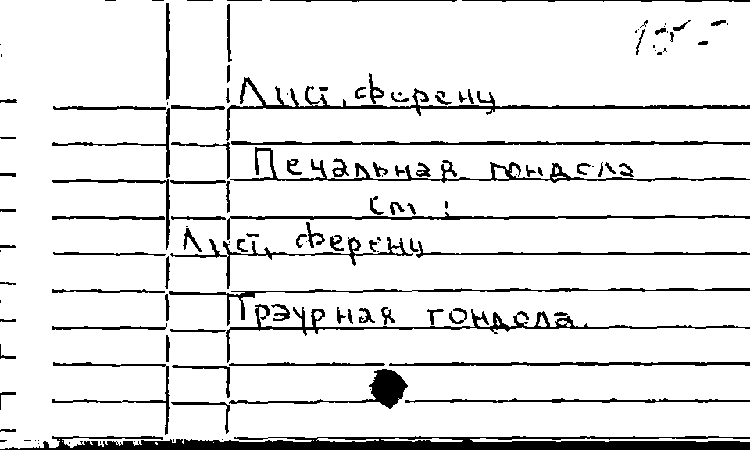 Лист, Ференц
Печальная гондола
см:
Лист, Ференц
Траурная гондола.